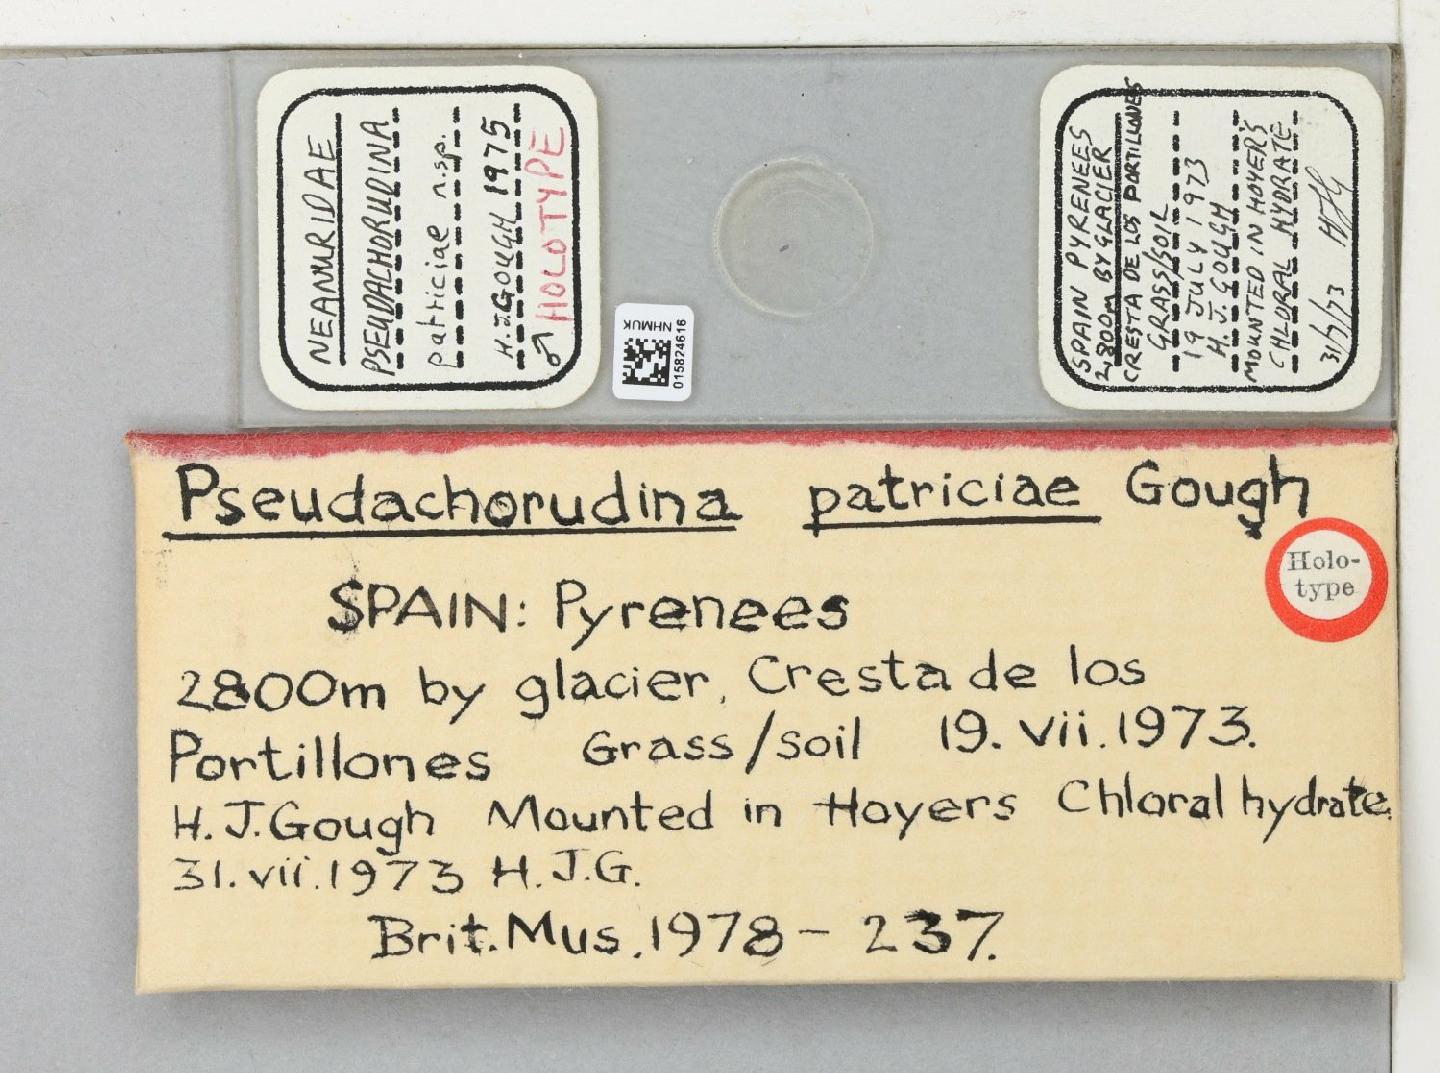 NEANURIDAE
PSEUDACHORUDINA
patriciae n.sp.
H.J.GOUGH 1975
♂ HOLOTYPE
NHMUK
015824616
SPAIN PYRENEES
2,800m BY GLACIER
CRESTA DE LOS PORTILLONES
GRASS/SOIL
19 JULY 1973
H. J. GOUGH
MOUNTED IN HOYER'S
CHLORAL HYDRATE
31/7/73 HJG
Pseudachorudina patriciae Gough
Holo-
type
SPAIN: Pyrenees
2800m by glacier, Cresta de los
Portillones Grass/soil 19.vii.1973.
H.J.Gough Mounted in Hoyers Chloral hydrate.
31.vii.1973 H.J.G.
Brit.Mus.1978-237.